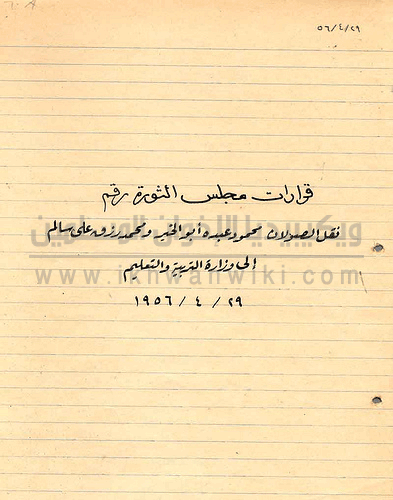 ٥٦/٤/٢٩
قرارات مجلس الثورة رقم
نقل الصولان محمود عبده أبو الخير ومحمد رزق على سالم
إلى وزارة التربية والتعليم
٢٩ / ٤ / ١٩٥٦
ويكيبيديا الإخوان المسلمين
www.ikhwanwiki.com